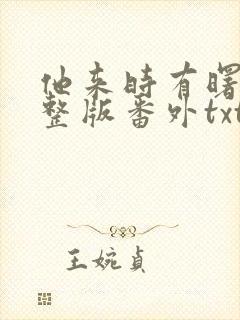 他来时有曙
整版番外txt
王婉贞